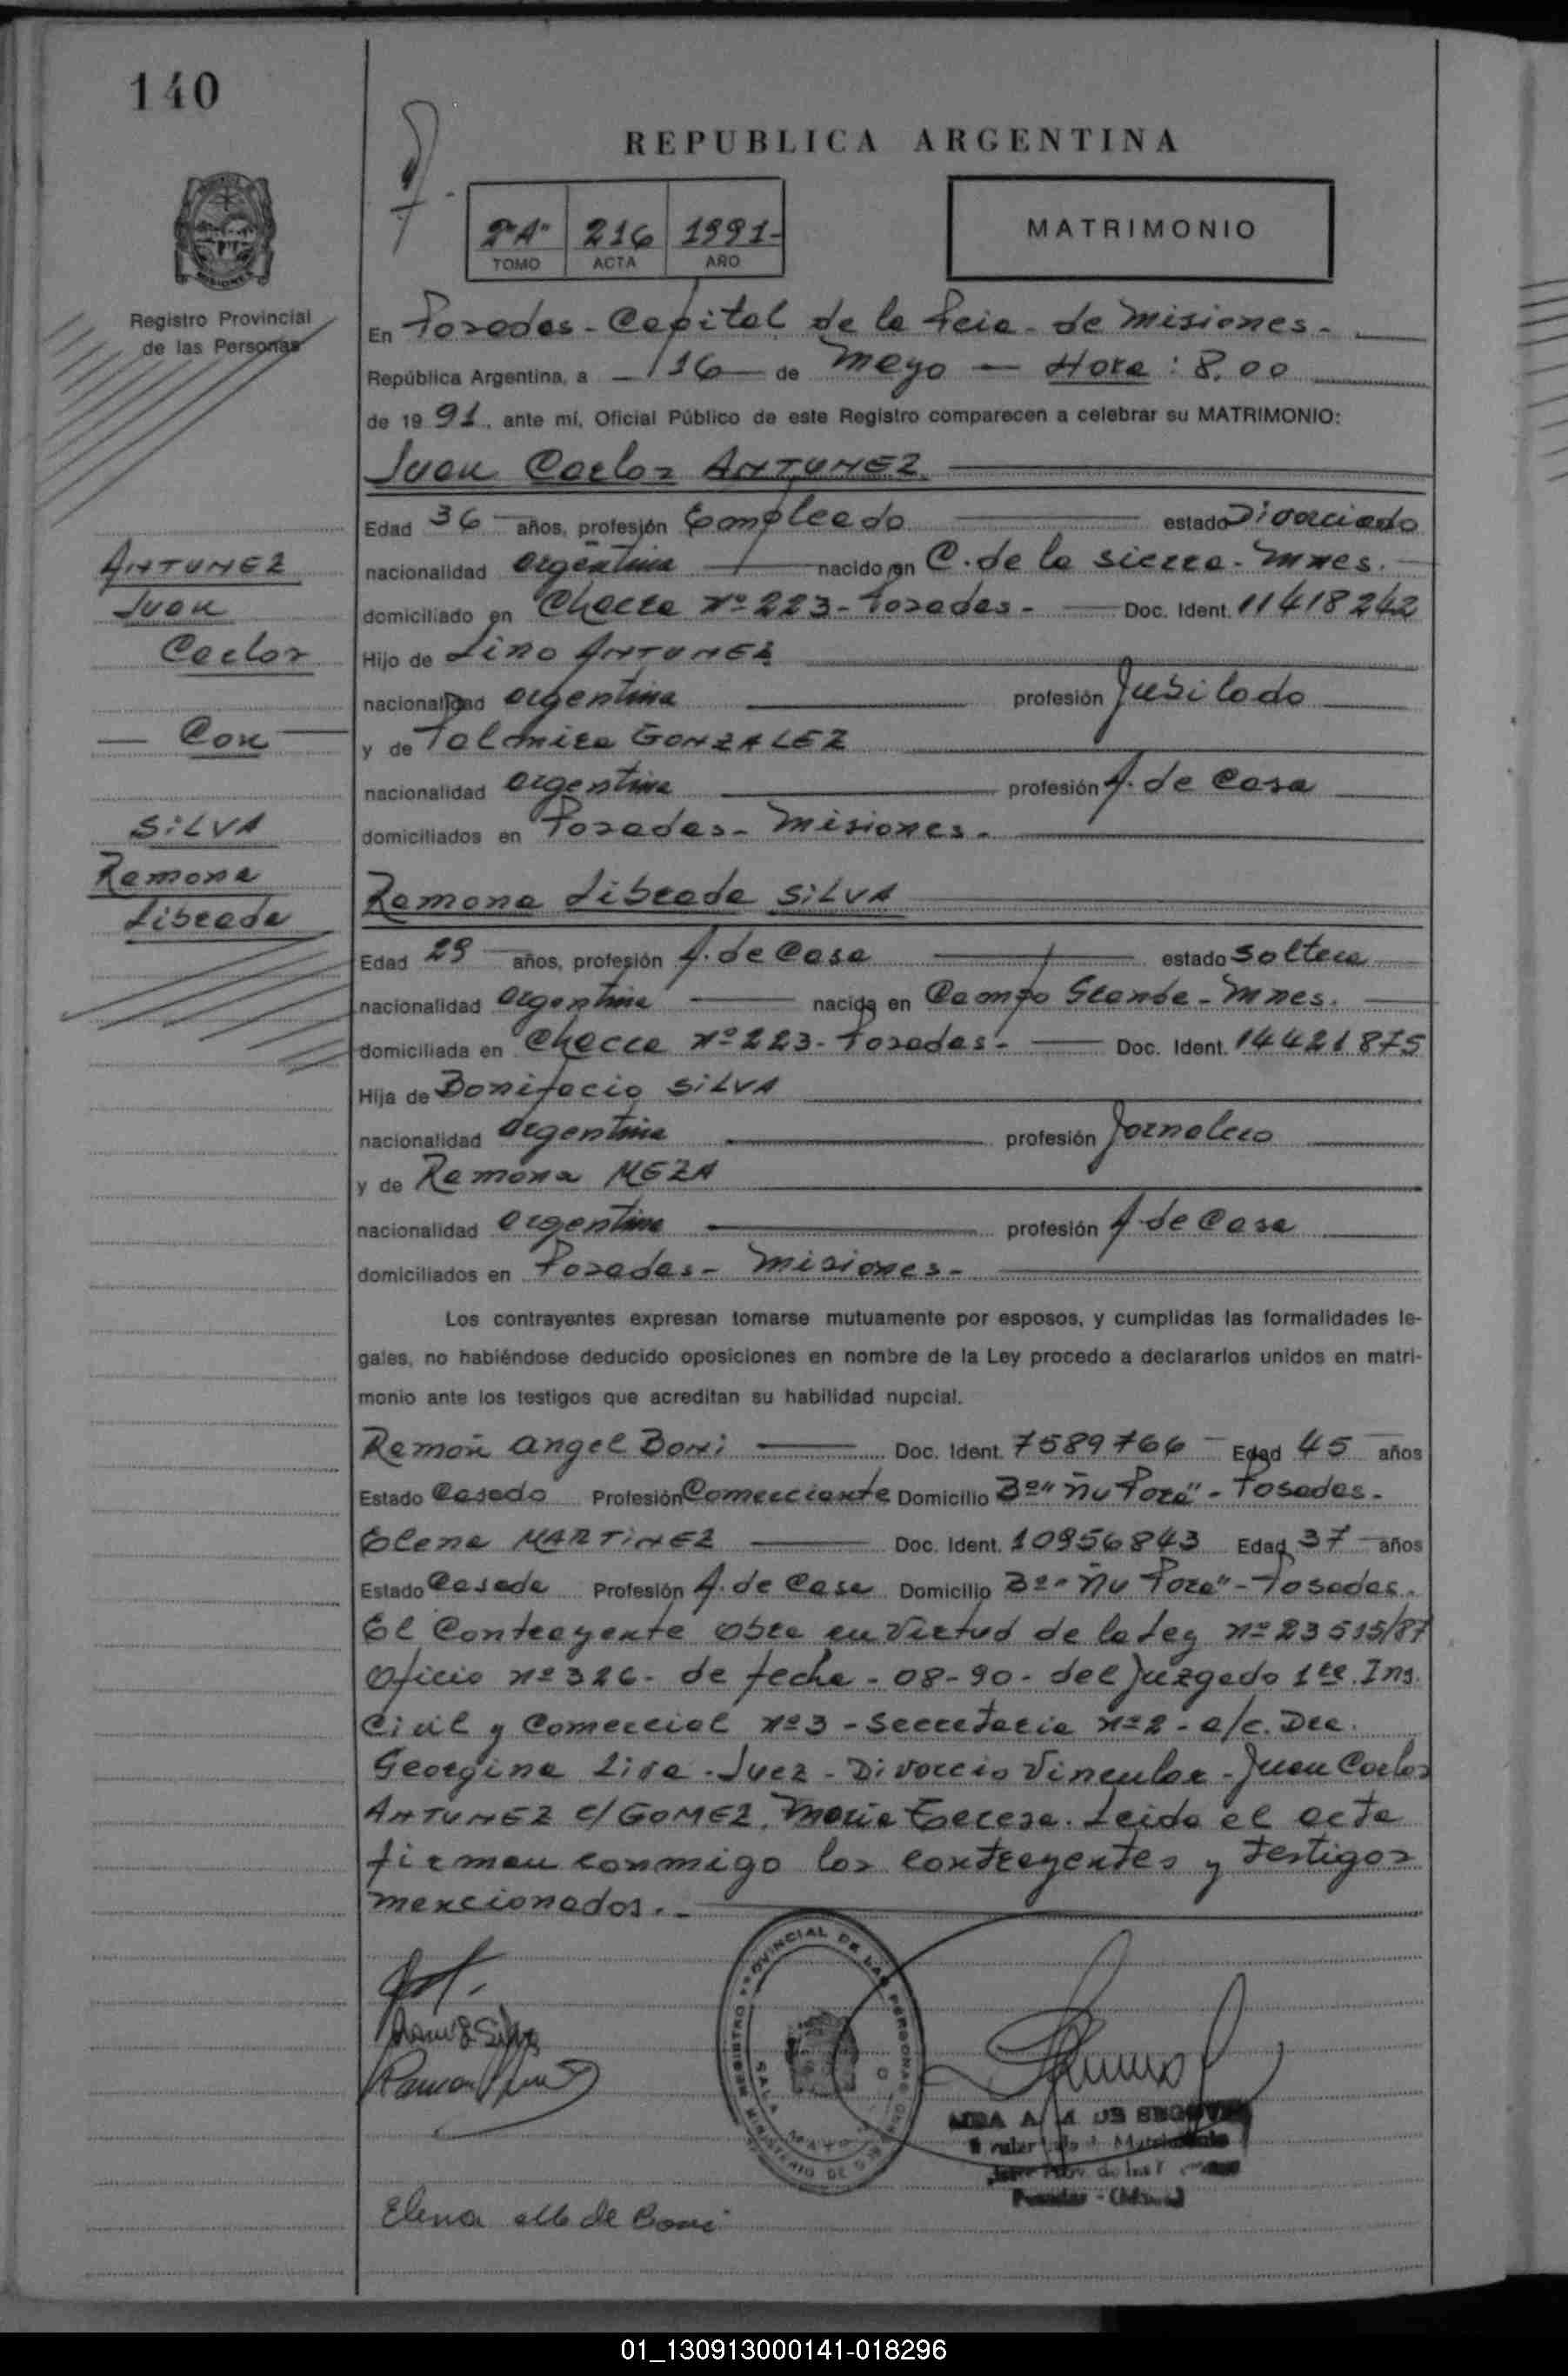 140
REPUBLICA ARGENTINA
2º"A" 216 1991-
TOMO ACTA AÑO
MATRIMONIO
MISIONES
Registro Provincial
de las Personas
En Posadas - Capital de la Pcia - de Misiones -
República Argentina, a 16 de Mayo - Hora : 8.00
de 1991, ante mí, Oficial Público de este Registro comparecen a celebrar su MATRIMONIO:
Juan Carlos ANTUNEZ
Edad 36 años, profesión Empleado estado Divorciado
nacionalidad argentina nacido en C. de la Sierra - Mnes.
domiciliado en Chacra Nº 223 - Posadas - Doc. Ident. 11418242
Hijo de Lino ANTUNEZ
nacionalidad argentina profesión Jubilado
y de Palmira GONZALEZ
nacionalidad argentina profesión A. de Casa
domiciliados en Posadas - Misiones -
ANTUNEZ
Juan
Carlos
- Con -
SILVA
Ramona
Librada
Ramona Librada SILVA
Edad 29 años, profesión A. de Casa estado Soltera
nacionalidad argentina nacida en Campo Grande - Mnes.
domiciliada en Chacra Nº 223 - Posadas - Doc. Ident. 14421875
Hija de Bonifacio SILVA
nacionalidad argentina profesión Jornalero
y de Ramona MEZA
nacionalidad argentina profesión A. de Casa
domiciliados en Posadas - Misiones -
Los contrayentes expresan tomarse mutuamente por esposos, y cumplidas las formalidades le-
gales, no habiéndose deducido oposiciones en nombre de la Ley procedo a declararlos unidos en matri-
monio ante los testigos que acreditan su habilidad nupcial.
Ramón Angel Boni Doc. Ident. 7589766 Edad 45 años
Estado Casado Profesión Comerciante Domicilio Bº "Ñu Porá" - Posadas -
Elena MARTINEZ Doc. Ident. 10956843 Edad 37 años
Estado Casada Profesión A. de Casa Domicilio Bº "Ñu Porá" - Posadas.
El Contrayente obra en virtud de la Ley nº 23515/87
Oficio nº 326 - de fecha - 08-90 - del Juzgado 1ra. Ins.
Civil y Comercial Nº 3 - Secretaria Nº 2 - a/c. Dra.
Georgina Lisa - Juez - Divorcio Vincular - Juan Carlos
ANTUNEZ c/ GOMEZ, Maria Teresa. Leida el acta
firman conmigo los contrayentes y testigos
mencionados. -
REGISTRO PROVINCIAL DE LAS PERSONAS
MINISTERIO DE
SALA
Posadas
Elena de Boni
01_130913000141-018296